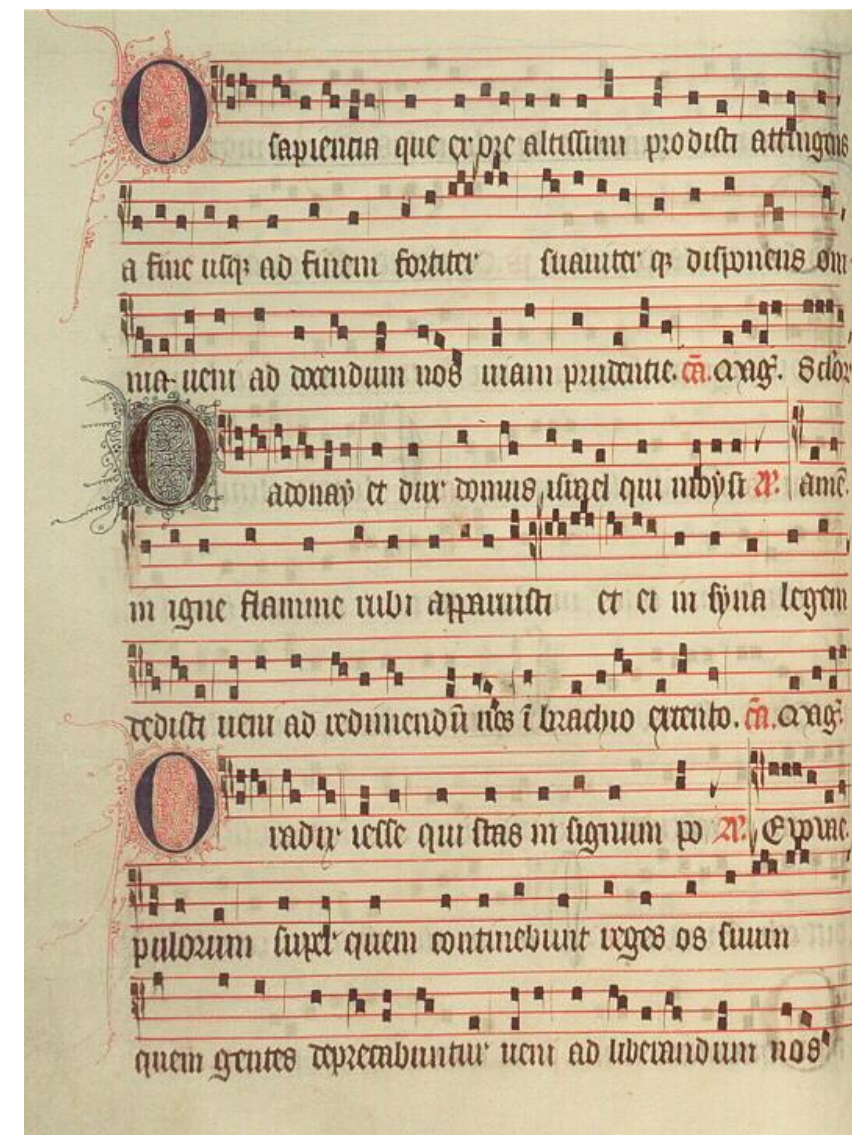 O sapientia que ex ore altissimi prodisti attingens
a fine usqꝫ ad finem fortiter suauiter qꝫ disponens om
nia ueni ad docendum nos uiam prudentie. cā. Mag.
O adonay et dux domus israel qui moysi amē.
in igne flamme rubi apparuisti et ei in syna legem
dedisti ueni ad redimendū nos ī brachio extento. cā. Mag.
O radix iesse qui stas in signum po
pulorum super quem continebunt reges os suum
quem gentes deprecabuntur ueni ad liberandum nos